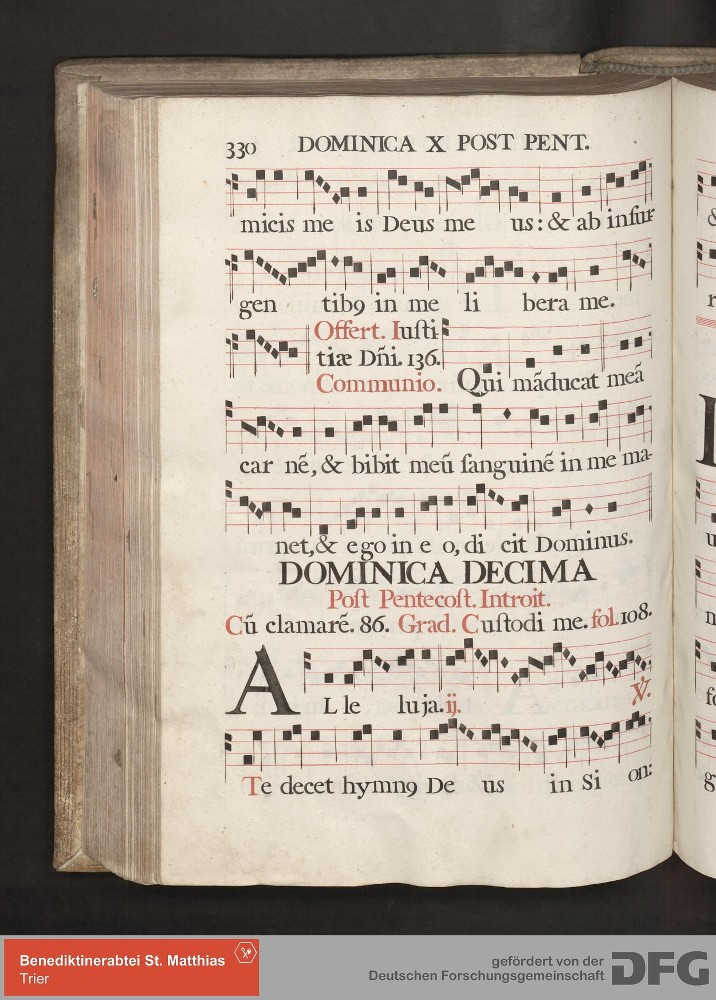 330 DOMINICA X POST PENT.
micis me is Deus me us: & ab insur-
gen tibꝰ in me li bera me.
Offert. Iusti-
tiæ Dñi. 136.
Communio. Qui mãducat meã
car nẽ, & bibit meũ sanguinẽ in me ma-
net, & ego in e o, di cit Dominus.
DOMINICA DECIMA
Post Pentecost. Introit.
Cũ clamarẽ. 86. Grad. Custodi me. fol. 108.
ALle luja. ij. ℣.
Te decet hymnꝰ De us in Si on:
Benediktinerabtei St. Matthias
Trier
gefördert von der
Deutschen Forschungsgemeinschaft DFG